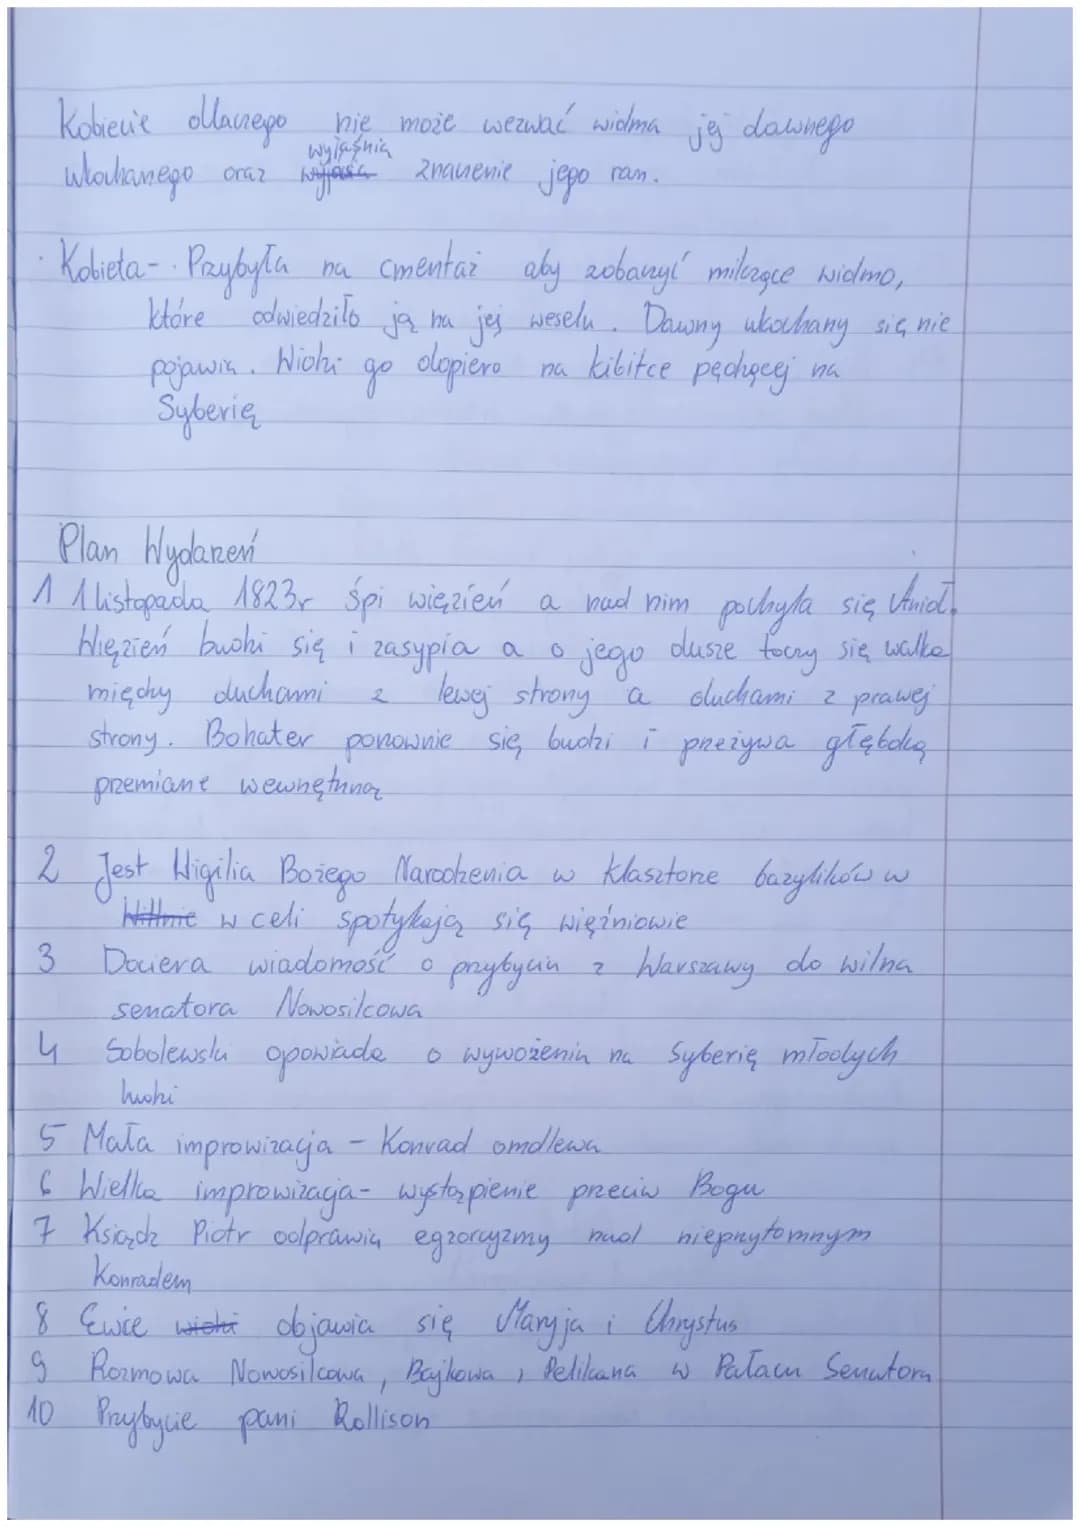 Kobiecie dlaczego nie może wezwać widma jej dawnego
wyjaśnia
ukochanego oraz wyjaśa znaczenie jego ran.
· Kobieta - . Przybyła na cmentaż aby zobaczyć milczące widmo,
które odwiedziło ją na jej weselu. Dawny ukochany się nie
pojawia. Widzi go dopiero na kibitce pędzącej na
Syberię
Plan Wydarzeń
1 1 listopada 1823r śpi więzień a nad nim pochyla się Anioł.
Więzień budzi się i zasypia a o jego dusze toczy się walka
między duchami z lewej strony a duchami z prawej
strony. Bohater ponownie się budzi i przeżywa głęboką
przemiane wewnętrzną
2 Jest Wigilia Bożego Narodzenia w klasztorze bazylików w
Willnie w celi spotykają się więźniowie
3 Dociera wiadomość o przybyciu z Warszawy do wilna
senatora Nowosilcowa
4 Sobolewski opowiada o wywożeniu na Syberię młodych
ludzi
5 Mała improwizacja - Konrad omdlewa
6 Wielka improwizacja - wystąpienie przeciw Bogu
7 Ksiądz Piotr odprawia egzorcyzmy nad nieprzytomnym
Konradem
8 Ewie widzi objawia się Maryja i Chrystus
9 Rozmowa Nowosilcowa, Bajkowa, Pelikana w Pałacu Senatora
10 Przybycie pani Rollison